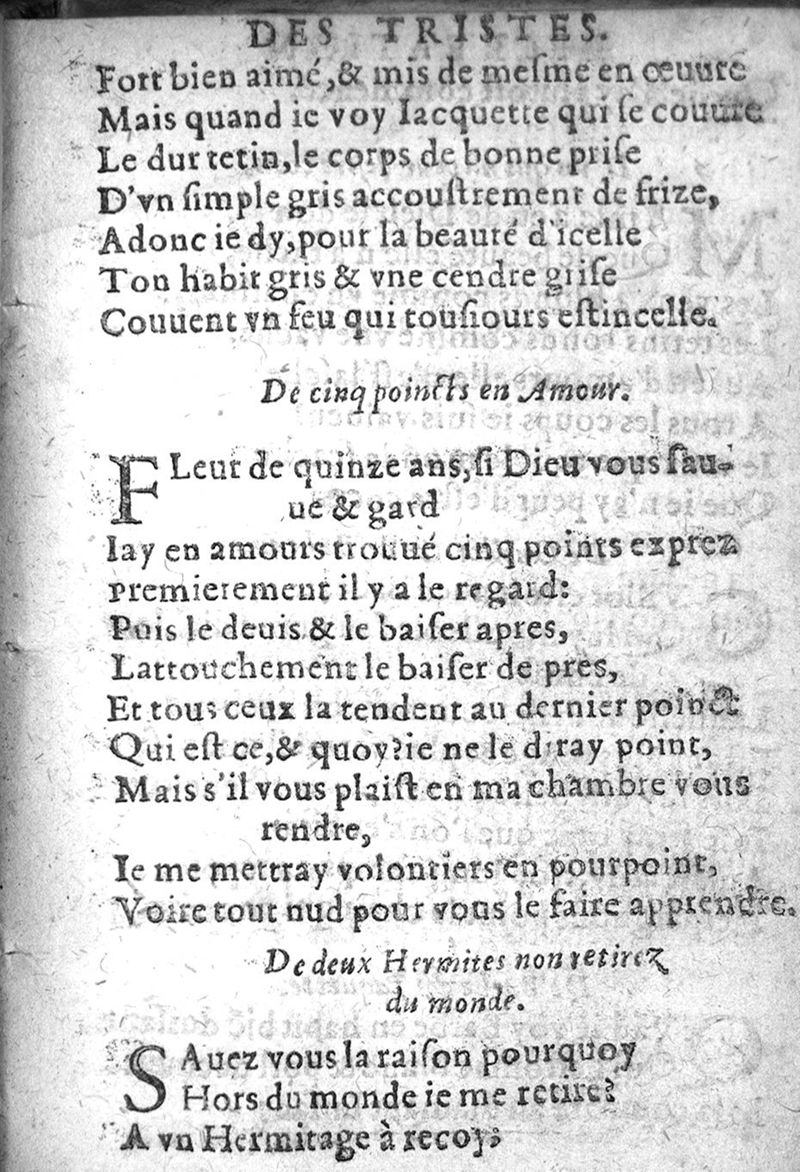 DES TRISTES.
Fort bien aimé,& mis de meſme en œuure
Mais quand ie voy Iacquette qui ſe couure
Le dur tetin,le corps de bonne priſe
D'vn ſimple gris accouſtrement de frize,
Adonc ie dy,pour la beauté d'icelle
Ton habit gris & vne cendre griſe
Couuent vn feu qui touſiours eſtincelle.
De cinq poincts en Amour.
FLeur de quinze ans,ſi Dieu vous ſau-
ue & gard
Iay en amours trouué cinq points exprez
Premierement il y a le regard:
Puis le deuis & le baiſer apres,
Lattouchement le baiſer de pres,
Et tous ceux la tendent au dernier poinct
Qui eſt ce,& quoy?ie ne le diray point,
Mais s'il vous plaiſt en ma chambre vous
rendre,
Ie me mettray volontiers en pourpoint,
Voire tout nud pour vous le faire apprendre.
De deux Hermites non retirez
du monde.
SAuez vous la raiſon pourquoy
Hors du monde ie me retire?
A vn Hermitage à recoy;